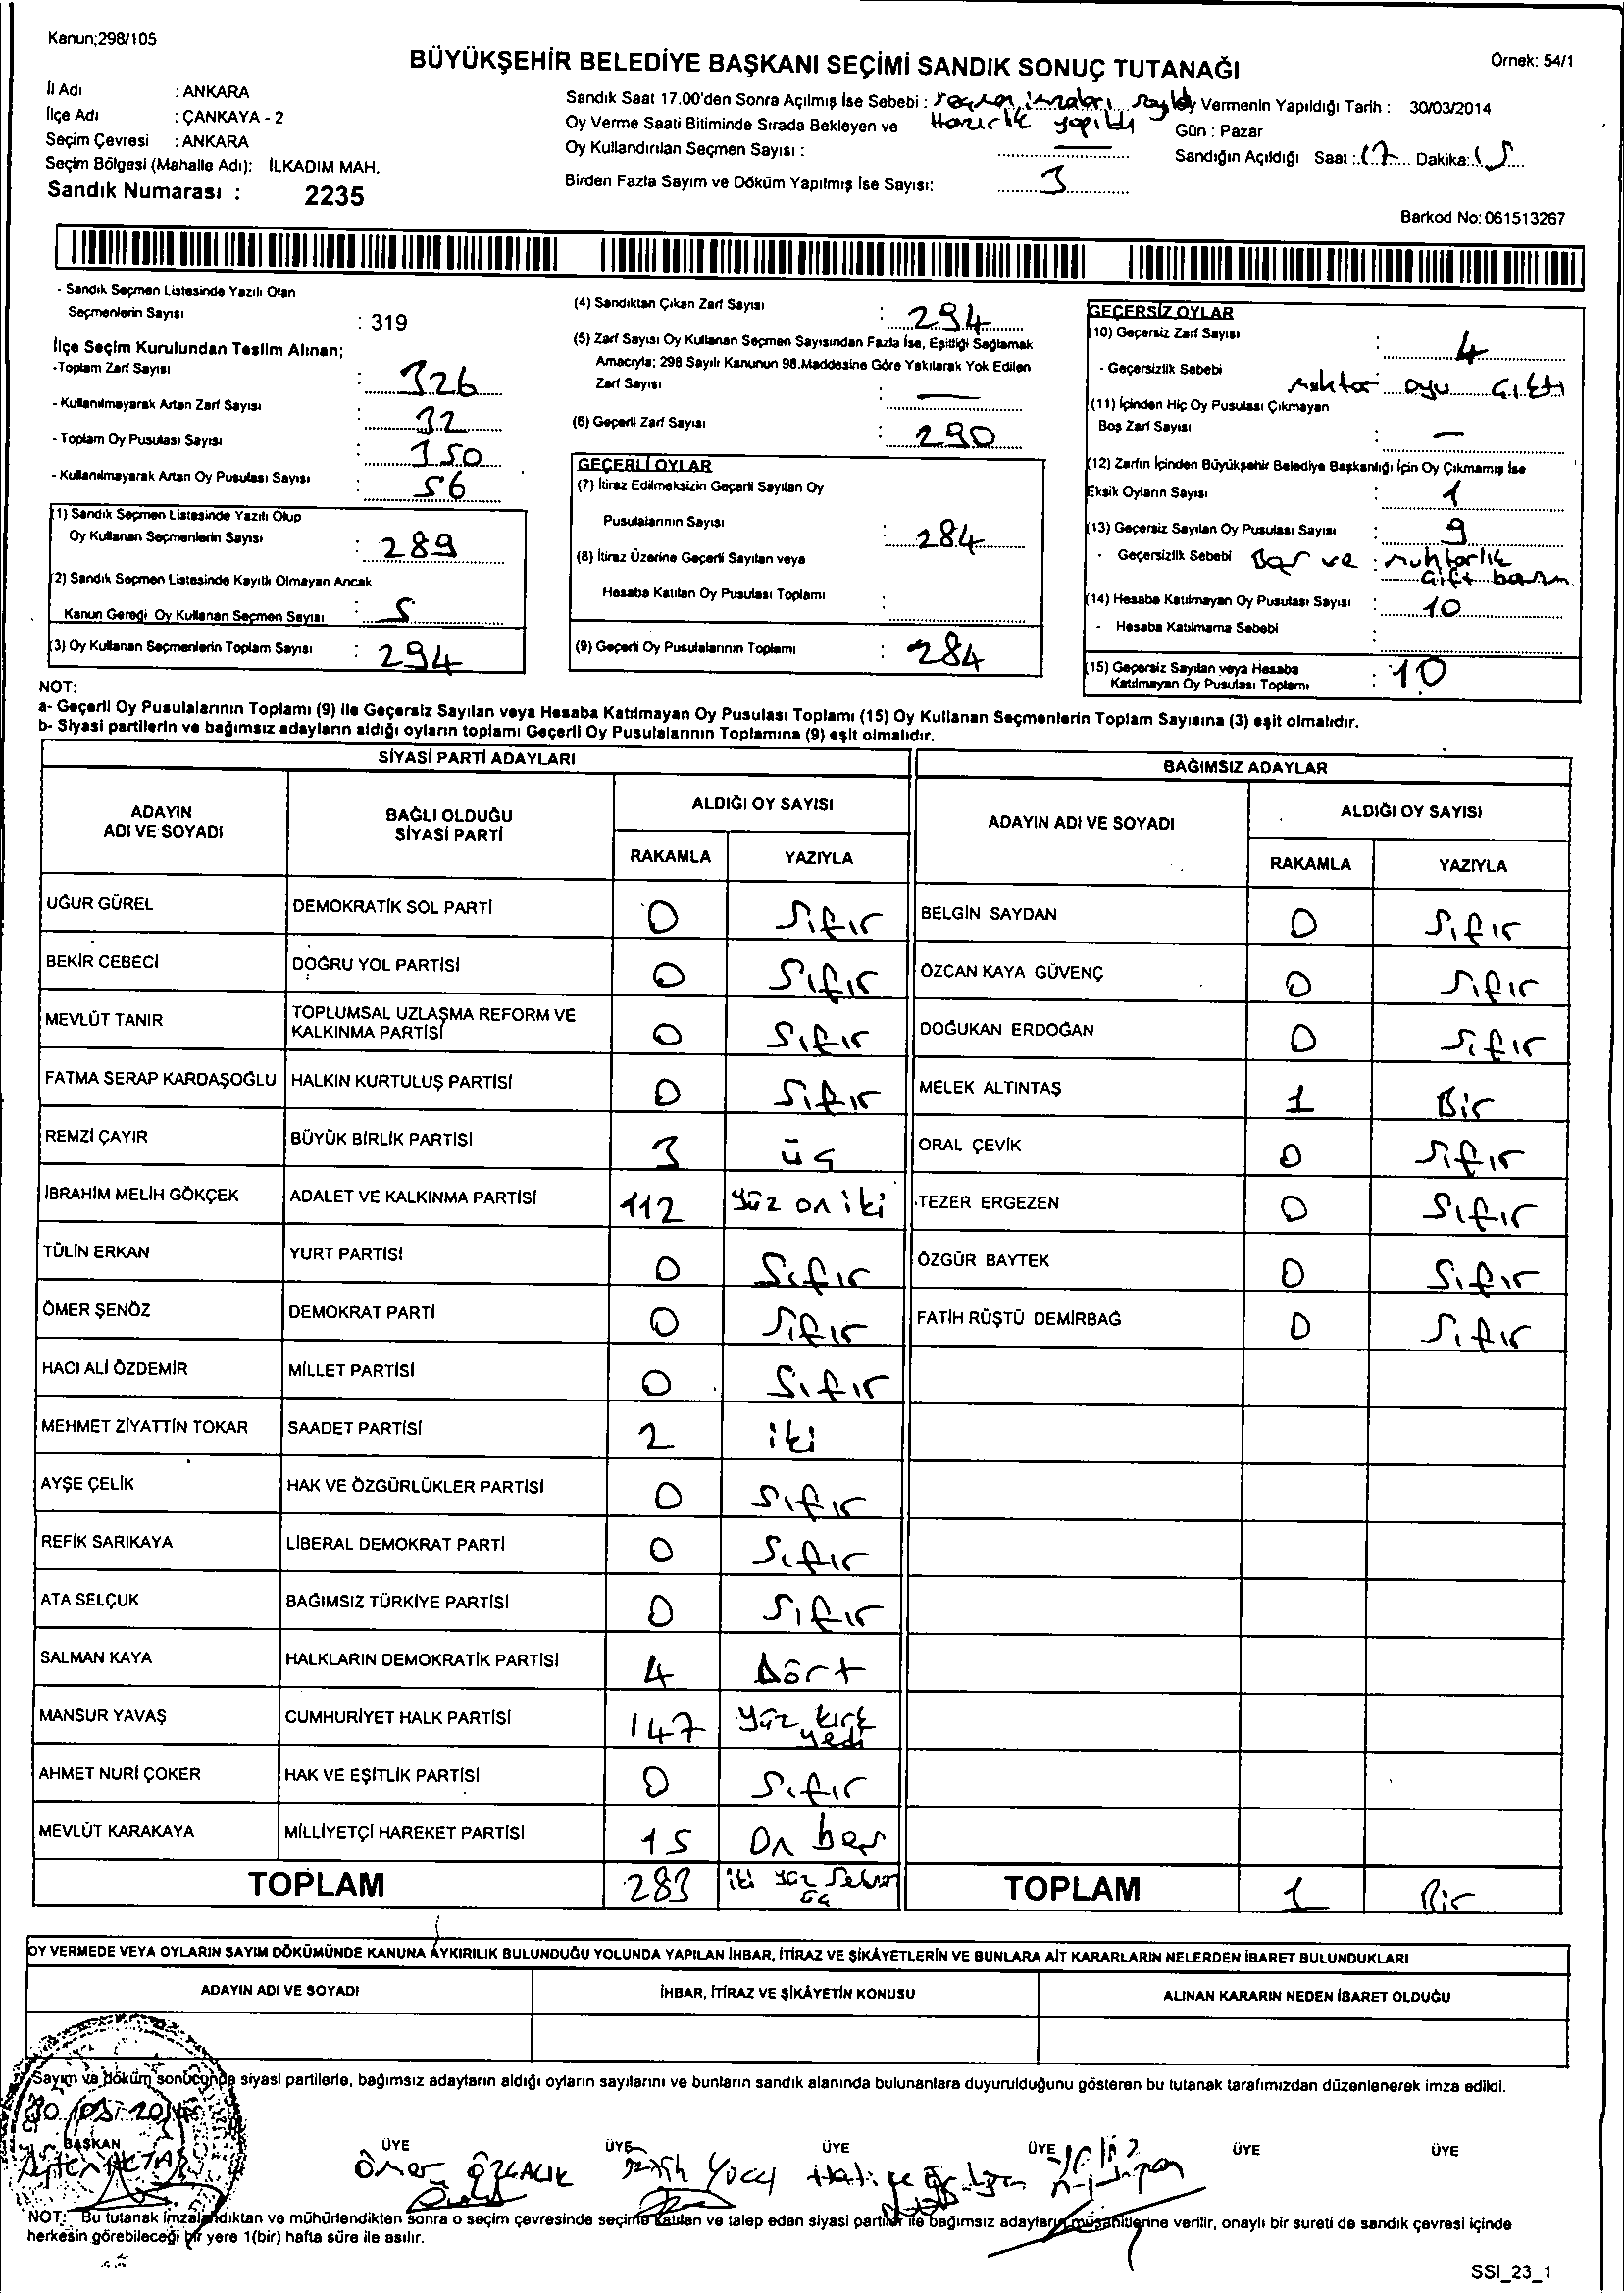 Kanun;298/105
BÜYÜKŞEHİR BELEDİYE BAŞKANI SEÇİMİ SANDIK SONUÇ TUTANAĞI
Örnek: 54/1
İl Adı : ANKARA
İlçe Adı : ÇANKAYA - 2
Seçim Çevresi : ANKARA
Seçim Bölgesi (Mahalle Adı): İLKADIM MAH.
Sandık Numarası : 2235
Sandık Saat 17.00'den Sonra Açılmış İse Sebebi : imzaları
Hazırlık yapıldı
Oy Verme Saati Bitiminde Sırada Bekleyen ve
Oy Kullandırılan Seçmen Sayısı : —
Birden Fazla Sayım ve Döküm Yapılmış İse Sayısı: 3
Oy Vermenin Yapıldığı Tarih : 30/03/2014
Gün : Pazar
Sandığın Açıldığı Saat : 17 Dakika: 15
Barkod No: 061513267
- Sandık Seçmen Listesinde Yazılı Olan
Seçmenlerin Sayısı : 319
İlçe Seçim Kurulundan Teslim Alınan;
-Toplam Zarf Sayısı : 326
- Kullanılmayarak Artan Zarf Sayısı : 32
- Toplam Oy Pusulası Sayısı : 350
- Kullanılmayarak Artan Oy Pusulası Sayısı : 56
(1) Sandık Seçmen Listesinde Yazılı Olup
Oy Kullanan Seçmenlerin Sayısı : 289
(2) Sandık Seçmen Listesinde Kayıtlı Olmayan Ancak
Kanun Gereği Oy Kullanan Seçmen Sayısı : 5
(3) Oy Kullanan Seçmenlerin Toplam Sayısı : 294
(4) Sandıktan Çıkan Zarf Sayısı : 294
(5) Zarf Sayısı Oy Kullanan Seçmen Sayısından Fazla İse, Eşitliği Sağlamak
Amacıyla; 298 Sayılı Kanunun 98.Maddesine Göre Yakılarak Yok Edilen
Zarf Sayısı : —
(6) Geçerli Zarf Sayısı : 290
GEÇERLİ OYLAR
(7) İtiraz Edilmeksizin Geçerli Sayılan Oy
Pusulalarının Sayısı : 284
(8) İtiraz Üzerine Geçerli Sayılan veya
Hesaba Katılan Oy Pusulası Toplamı :
(9) Geçerli Oy Pusulalarının Toplamı : 284
GEÇERSİZ OYLAR
(10) Geçersiz Zarf Sayısı : 4
- Geçersizlik Sebebi muhtar oyu çıktı
(11) İçinden Hiç Oy Pusulası Çıkmayan
Boş Zarf Sayısı : —
(12) Zarfın İçinden Büyükşehir Belediye Başkanlığı İçin Oy Çıkmamış İse
Eksik Oyların Sayısı : 1
(13) Geçersiz Sayılan Oy Pusulası Sayısı : 9
- Geçersizlik Sebebi Boş ve : muhtarlık
çift basım
(14) Hesaba Katılmayan Oy Pusulası Sayısı : 10
- Hesaba Katılmama Sebebi :
(15) Geçersiz Sayılan veya Hesaba
Katılmayan Oy Pusulası Toplamı : 10
NOT:
a- Geçerli Oy Pusulalarının Toplamı (9) ile Geçersiz Sayılan veya Hesaba Katılmayan Oy Pusulası Toplamı (15) Oy Kullanan Seçmenlerin Toplam Sayısına (3) eşit olmalıdır.
b- Siyasi partilerin ve bağımsız adayların aldığı oyların toplamı Geçerli Oy Pusulalarının Toplamına (9) eşit olmalıdır.
SİYASİ PARTİ ADAYLARI
ADAYIN ADI VE SOYADI BAĞLI OLDUĞU SİYASİ PARTİ ALDIĞI OY SAYISI
RAKAMLA YAZIYLA
UĞUR GÜREL DEMOKRATİK SOL PARTİ 0 Sıfır
BEKİR CEBECİ DOĞRU YOL PARTİSİ 0 Sıfır
MEVLÜT TANIR TOPLUMSAL UZLAŞMA REFORM VE KALKINMA PARTİSİ 0 Sıfır
FATMA SERAP KARDAŞOĞLU HALKIN KURTULUŞ PARTİSİ 0 Sıfır
REMZİ ÇAYIR BÜYÜK BİRLİK PARTİSİ 3 üç
İBRAHİM MELİH GÖKÇEK ADALET VE KALKINMA PARTİSİ 112 yüz on iki
TÜLİN ERKAN YURT PARTİSİ 0 Sıfır
ÖMER ŞENÖZ DEMOKRAT PARTİ 0 Sıfır
HACI ALİ ÖZDEMİR MİLLET PARTİSİ 0 Sıfır
MEHMET ZİYATTİN TOKAR SAADET PARTİSİ 2 iki
AYŞE ÇELİK HAK VE ÖZGÜRLÜKLER PARTİSİ 0 Sıfır
REFİK SARIKAYA LİBERAL DEMOKRAT PARTİ 0 Sıfır
ATA SELÇUK BAĞIMSIZ TÜRKİYE PARTİSİ 0 Sıfır
SALMAN KAYA HALKLARIN DEMOKRATİK PARTİSİ 4 Dört
MANSUR YAVAŞ CUMHURİYET HALK PARTİSİ 147 yüz kırk yedi
AHMET NURİ ÇOKER HAK VE EŞİTLİK PARTİSİ 0 Sıfır
MEVLÜT KARAKAYA MİLLİYETÇİ HAREKET PARTİSİ 15 On beş
TOPLAM 283 iki yüz seksen üç
BAĞIMSIZ ADAYLAR
ADAYIN ADI VE SOYADI ALDIĞI OY SAYISI
RAKAMLA YAZIYLA
BELGİN SAYDAN 0 Sıfır
ÖZCAN KAYA GÜVENÇ 0 Sıfır
DOĞUKAN ERDOĞAN 0 Sıfır
MELEK ALTINTAŞ 1 Bir
ORAL ÇEVİK 0 Sıfır
TEZER ERGEZEN 0 Sıfır
ÖZGÜR BAYTEK 0 Sıfır
FATİH RÜŞTÜ DEMİRBAĞ 0 Sıfır
TOPLAM 1 Bir
OY VERMEDE VEYA OYLARIN SAYIM DÖKÜMÜNDE KANUNA AYKIRILIK BULUNDUĞU YOLUNDA YAPILAN İHBAR, İTİRAZ VE ŞİKÂYETLERİN VE BUNLARA AİT KARARLARIN NELERDEN İBARET BULUNDUKLARI
ADAYIN ADI VE SOYADI İHBAR, İTİRAZ VE ŞİKÂYETİN KONUSU ALINAN KARARIN NEDEN İBARET OLDUĞU
Sayım ve döküm sonucunda siyasi partilerle, bağımsız adayların aldığı oyların sayılarını ve bunların sandık alanında bulunanlara duyurulduğunu gösteren bu tutanak tarafımızdan düzenlenerek imza edildi.
30/03/2014
BAŞKAN ÜYE ÜYE ÜYE ÜYE ÜYE ÜYE
Ömer ÖZÇALIK Hatice
NOT: Bu tutanak imzalandıktan ve mühürlendikten sonra o seçim çevresinde seçime katılan ve talep eden siyasi partiler ile bağımsız adayların müşahitlerine verilir, onaylı bir sureti de sandık çevresi içinde
herkesin görebileceği bir yere 1(bir) hafta süre ile asılır.
SSI_23_1